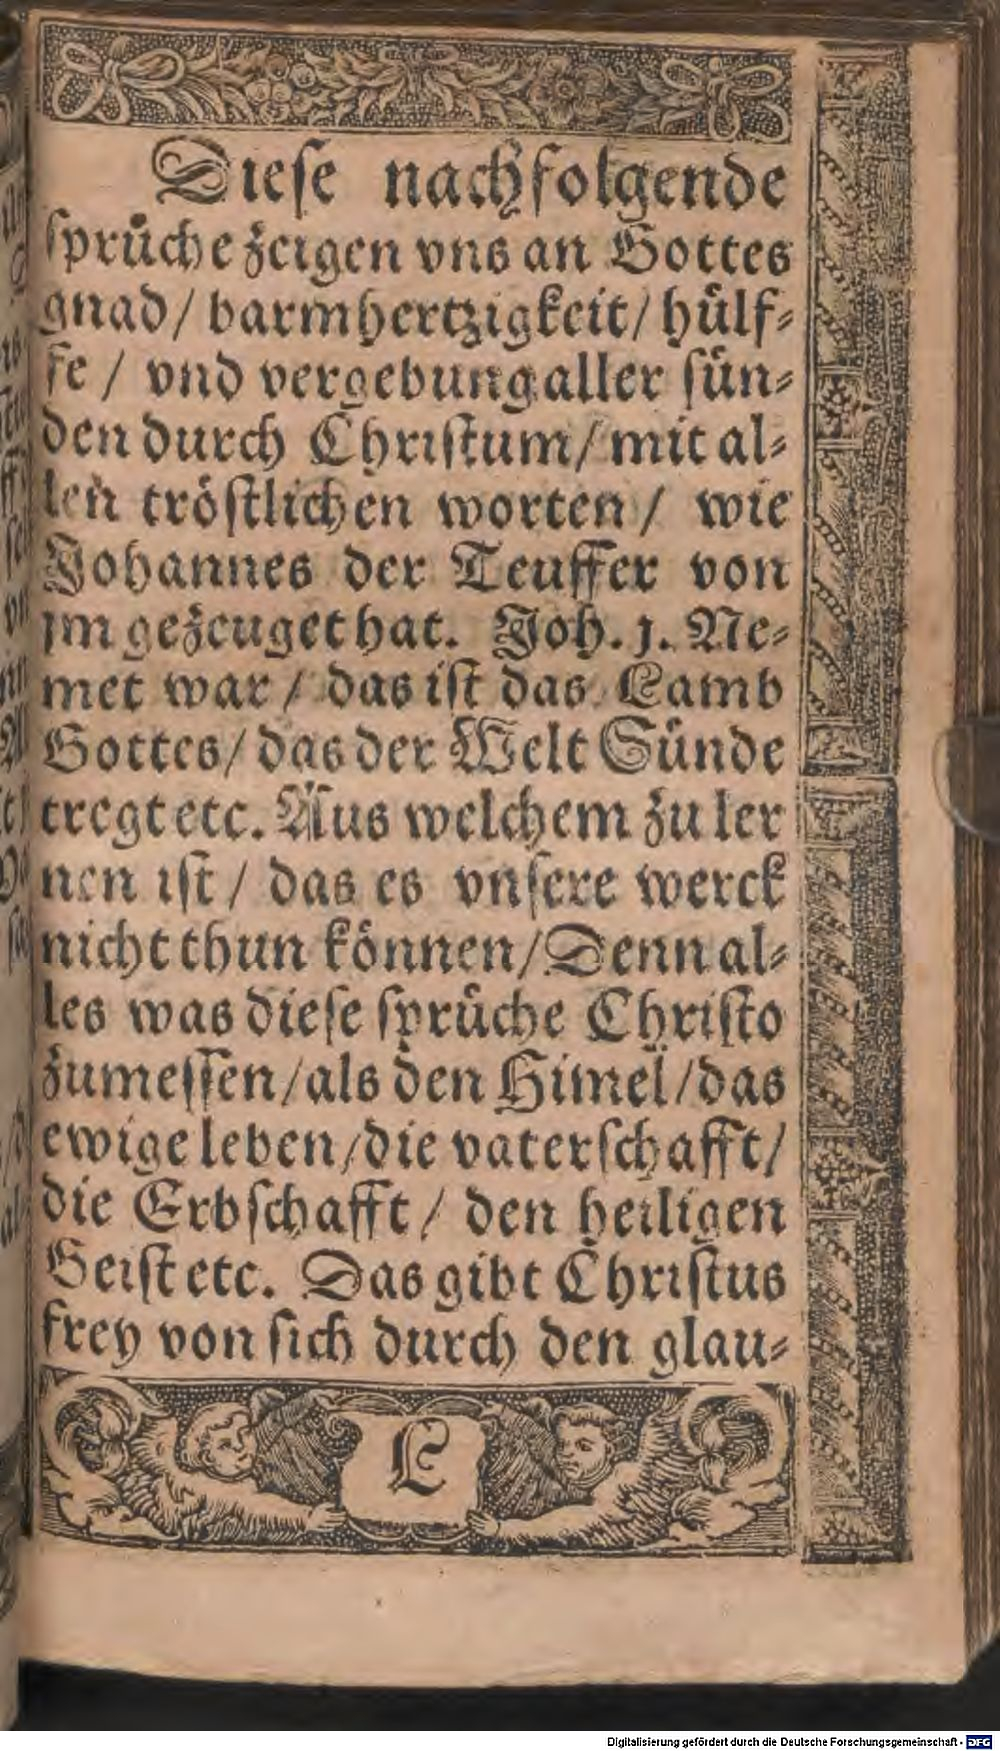 Diese nachfolgende
sprüche zeigen vns an Gottes
gnad / barmhertzigkeit / hülf-
fe / vnd vergebung aller sün-
den durch Christum / mit al-
len tröstlichen worten / wie
Johannes der Teuffer von
jm gezeuget hat. Joh. j. Ne-
met war / das ist das Lamb
Gottes / das der Welt Sünde
tregt etc. Aus welchem zu ler
nen ist / das es vnsere werck
nicht thun können / Denn al-
les was diese sprüche Christo
zumessen / als den Himel / das
ewige leben / die vaterschafft /
die Erbschafft / den heiligen
Geist etc. Das gibt Christus
frey von sich durch den glau-
E
Digitalisierung gefördert durch die Deutsche Forschungsgemeinschaft - DFG